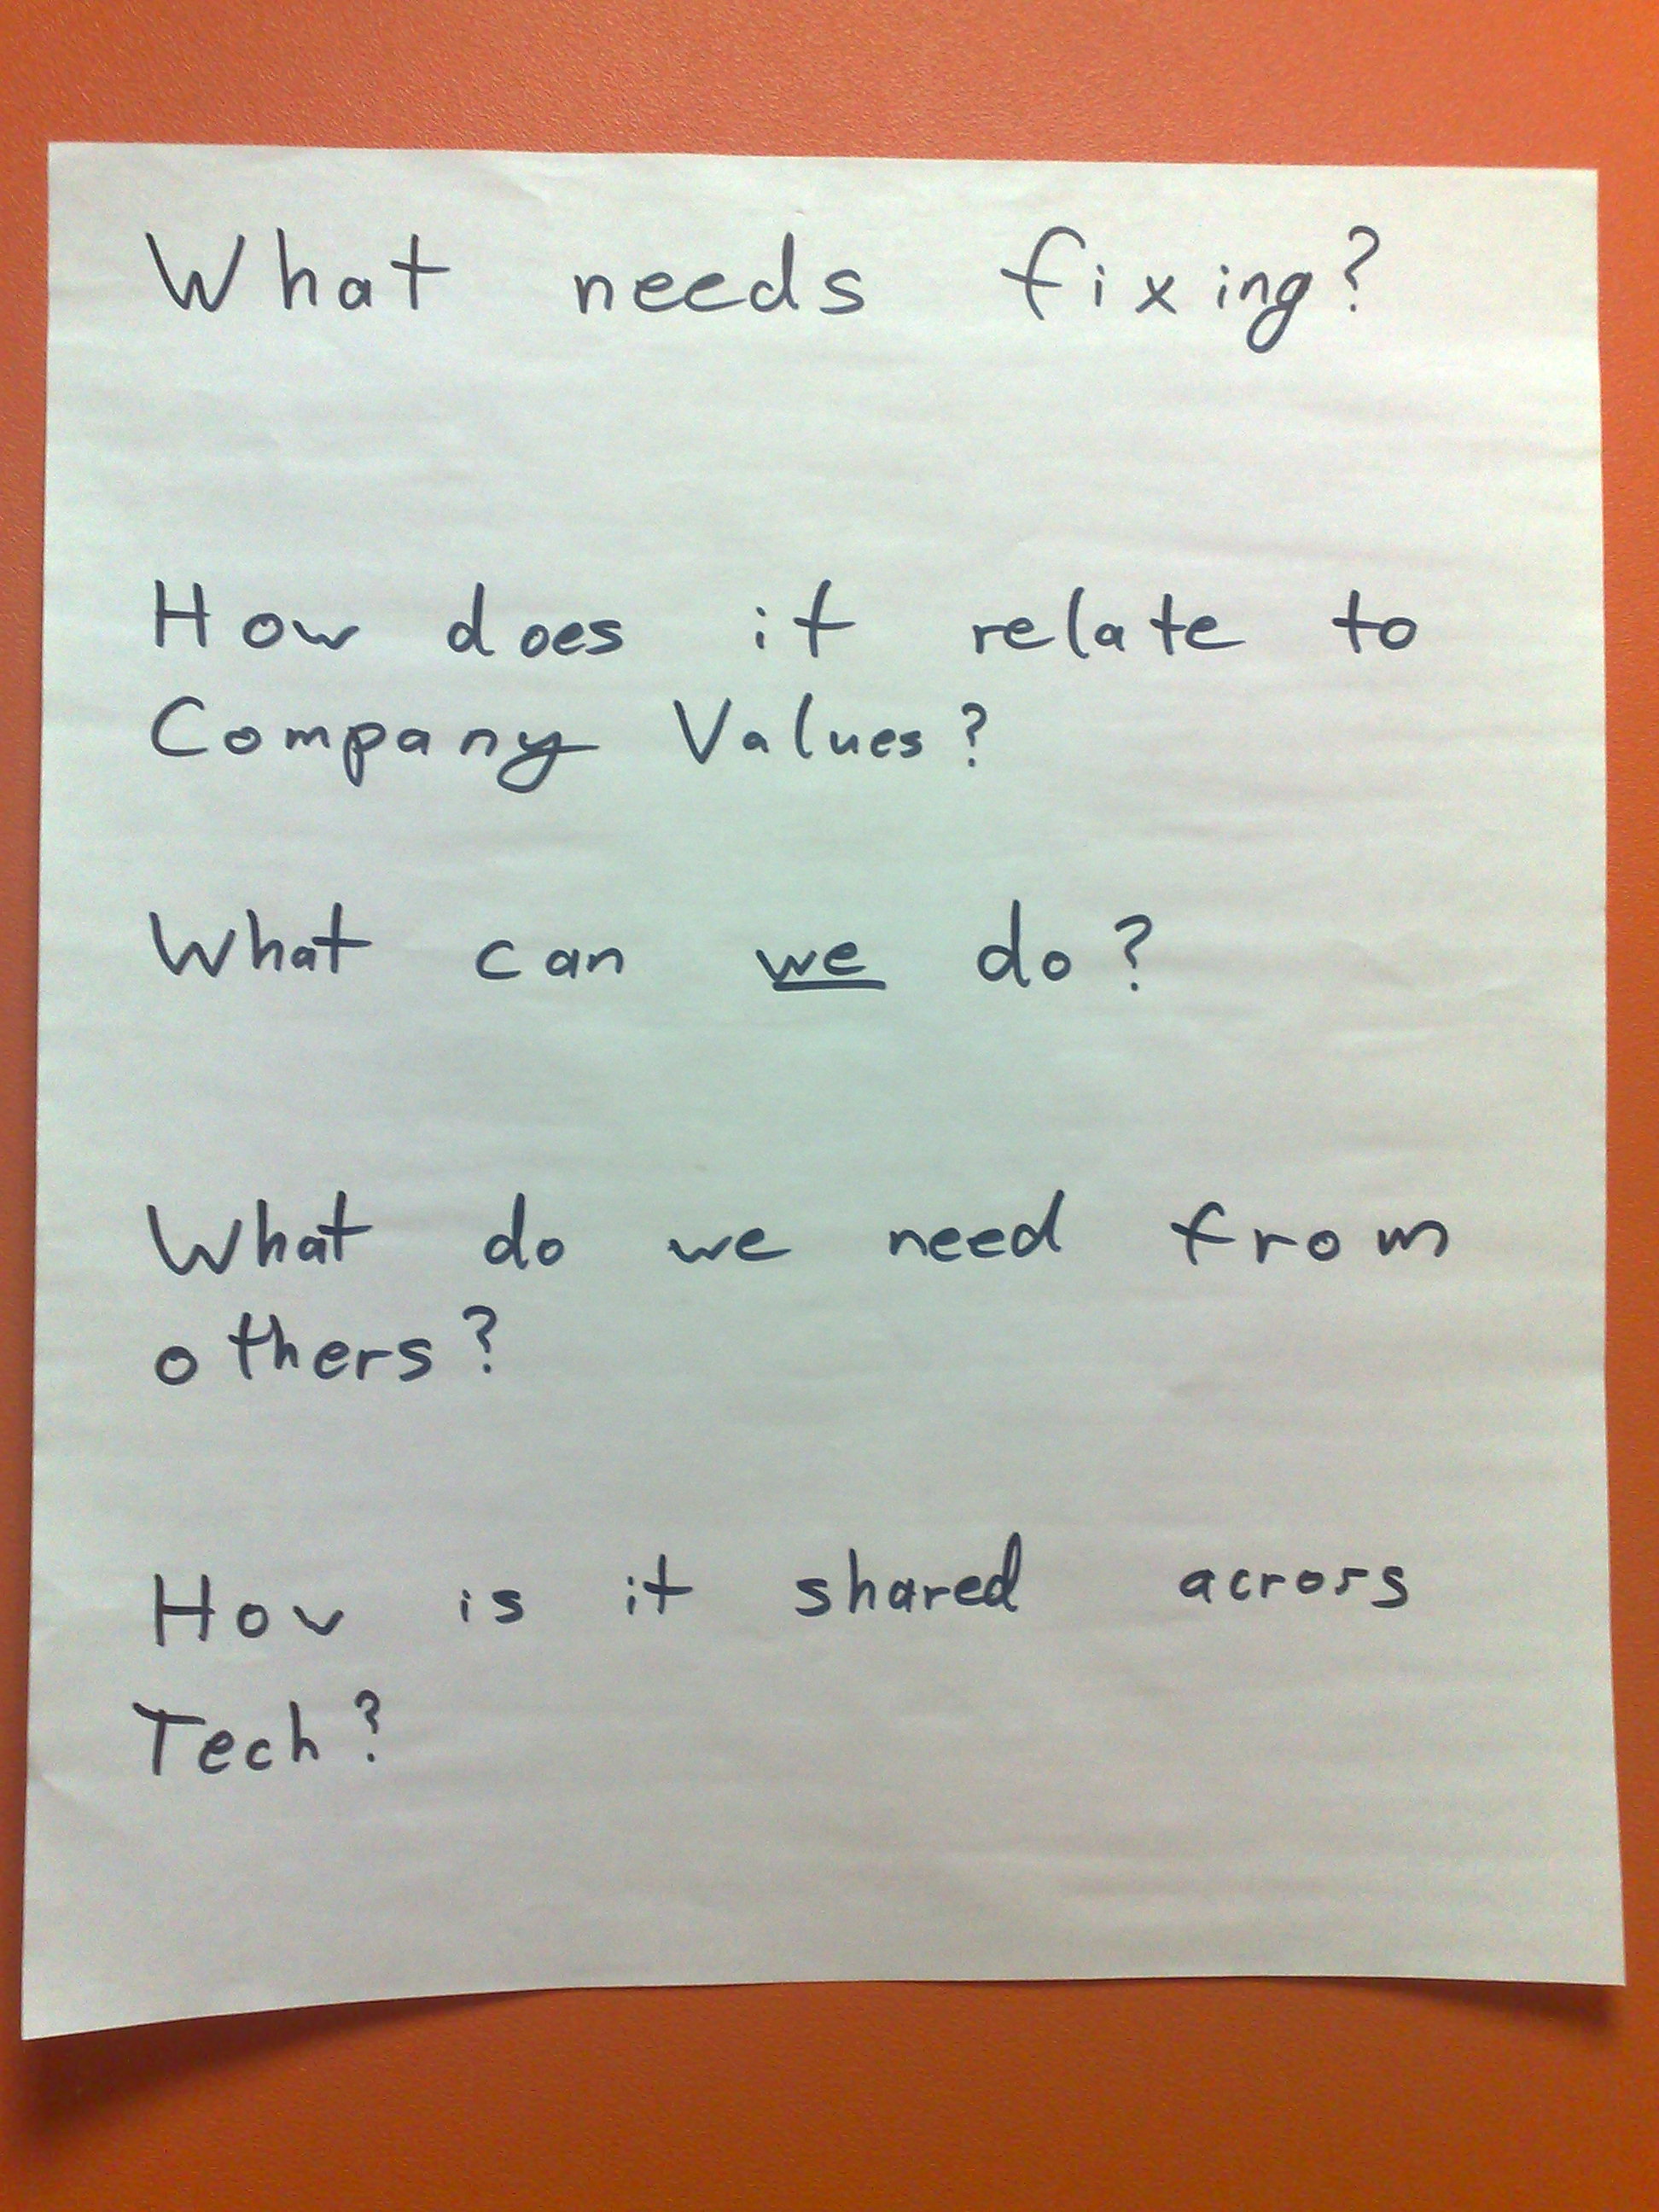 What needs fixing?
How does it relate to
Company Values?
What can we do?
What do we need from
others?
How is it shared across
Tech?